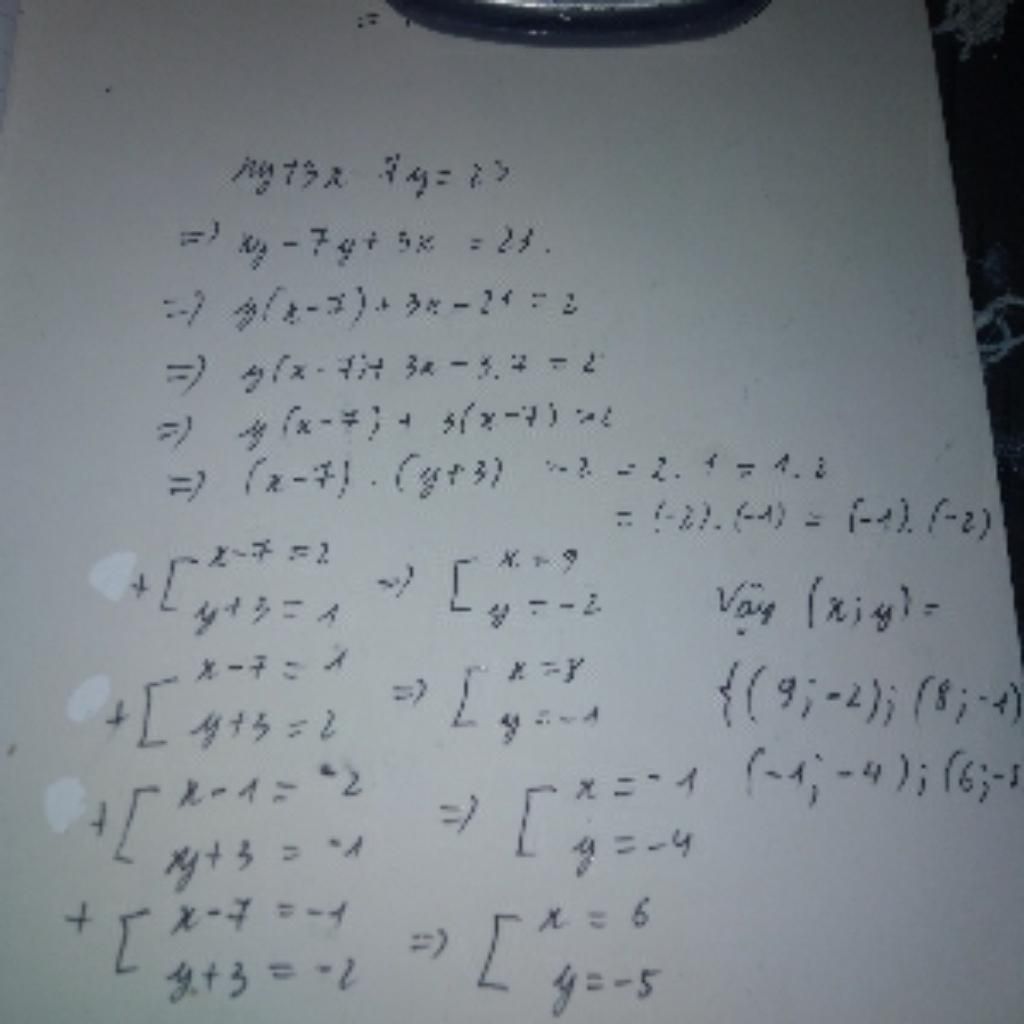 =
xy+3x 7y=23
=) xy-7y+3x =23.
=) y(x-7)+3x-21=2
=) y(x-7)+3x-3.7=2
=) y(x-7)+3(x-7)=2
=) (x-7).(y+3) =2 =2.1=1.2
=(-2).(-1)=(-1).(-2)
+[x-7=2 =) [x=9
y+3=1 y=-2
Vậy (x;y)=
+[x-7=1 =) [x=8
y+3=2 y=-1
{(9;-2);(8;-1)
+[x-1=-2 =) [x=-1
xy+3=-1 y=-4
(-1;-4);(6;-5
+[x-7=-1 =) [x=6
y+3=-2 y=-5